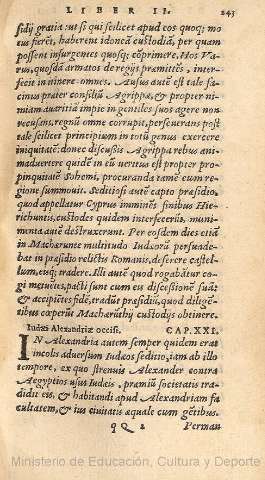 LIBER II. 243
sidij gratia: ut si qui scilicet apud eos quoq; mo
tus fieret, haberent idoneā custodiā, per quam
possent insurgentes quosq; cōprimere. Hos Va-
rus, quosdā armatos de regijs præmittēs, inter-
fecit in itinere omnes. Ausus autē est tale faci-
cimus præter consiliū Agrippæ, & propter ni-
miam auaritiā impie in gentiles suos agere non
recusans, regnū omne corrupit, perseuerans post
tale scilicet principium in totū genus exercere
iniquitatē: donec discussis Agrippa rebus ani-
maduertere quidē in eū veritus est propter pro-
pinquitatē Sohemi, procuranda tamē eum re-
gione summouit. Seditiosi autē capto præsidio,
quod appellatur Cyprus imminēs finibus Hie-
richuntis, custodes quidem interfecerūt, muni-
menta autē destruxerunt. Per eosdem dies etiā
in Macherunte multitudo Iudæorū persuade-
bat in præsidio relictis Romanis, deserere castel-
lum, eisq; tradere. Illi autē quod rogabātur co-
gi metuētes, pacti sunt cum eis discessionē suā:
& accipiētes fidē, tradūt præsidiū, quod diligē-
tibus cœperūt Macheruthij custodijs obtinere.
Iudæi Alexandriæ occisi. CAP. XXI.
IN Alexandria autem semper quidem erat
incolis aduersum Iudæos seditio, iam ab illo
tempore, ex quo strenuis Alexander contra
Aegyptios usus Iudeis, præmiū societatis tra-
didit eis, & habitandi apud Alexandriam fa
cultatem, & ius ciuitatis æquale cum gētibus.
QQ 2 Perman
Ministerio de Educación, Cultura y Deporte